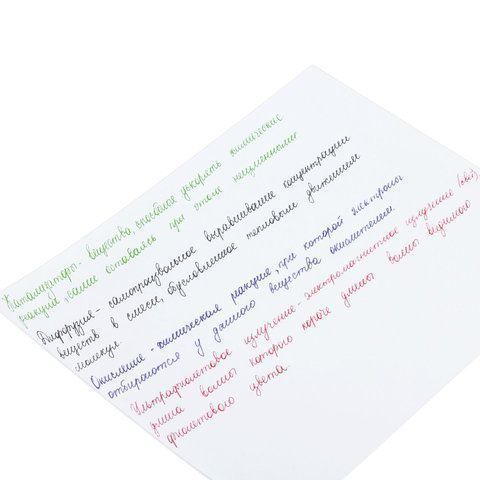 Катализаторы - вещества, способные ускорять химические
реакции, сами оставаясь при этом неизменными
Диффузия - самопроизвольное выравнивание концентрации
веществ в смеси, обусловленное тепловым движением
молекул.
Окисление - химическая реакция, при которой электроны
отбираются у данного вещества окислителем.
Ультрафиолетовое излучение - электромагнитное излучение (свет),
длина волны которого короче длины волны видимого
фиолетового цвета.